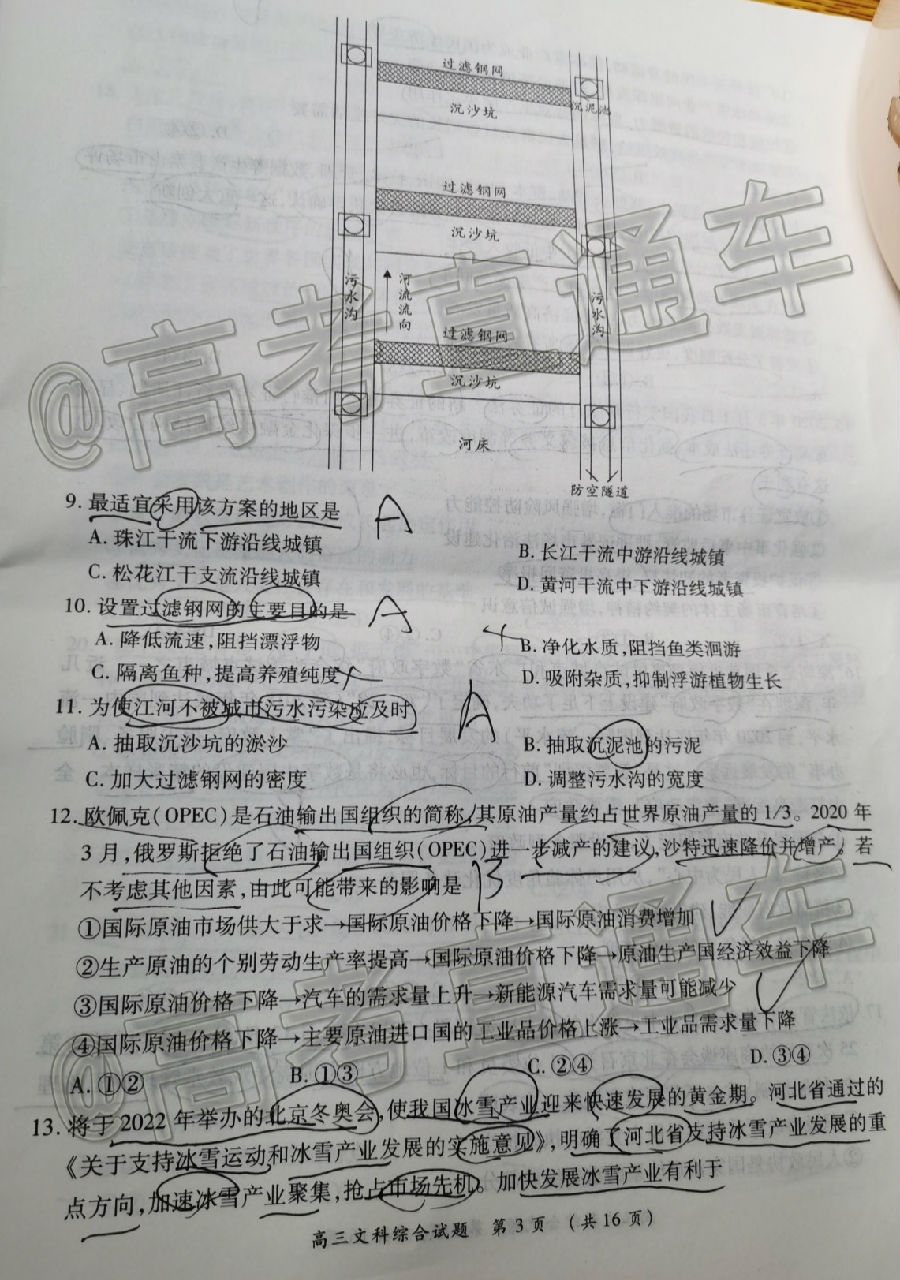 过滤钢网
沉泥池
沉沙坑
过滤钢网
沉沙坑
污水沟
河流流向
污水沟
过滤钢网
沉沙坑
河床
防空隧道
9. 最适宜采用该方案的地区是 A
A. 珠江干流下游沿线城镇 B. 长江干流中游沿线城镇
C. 松花江干支流沿线城镇 D. 黄河干流中下游沿线城镇
10. 设置过滤钢网的主要目的是 A
A. 降低流速,阻挡漂浮物 B. 净化水质,阻挡鱼类洄游
C. 隔离鱼种,提高养殖纯度 D. 吸附杂质,抑制浮游植物生长
11. 为使江河不被城市污水污染,应及时 A
A. 抽取沉沙坑的淤沙 B. 抽取沉泥池的污泥
C. 加大过滤钢网的密度 D. 调整污水沟的宽度
12. 欧佩克(OPEC)是石油输出国组织的简称,其原油产量约占世界原油产量的1/3。2020年
3月,俄罗斯拒绝了石油输出国组织(OPEC)进一步减产的建议,沙特迅速降价并增产。若
不考虑其他因素,由此可能带来的影响是 B
①国际原油市场供大于求→国际原油价格下降→国际原油消费增加
②生产原油的个别劳动生产率提高→国际原油价格下降→原油生产国经济效益下降
③国际原油价格下降→汽车的需求量上升→新能源汽车需求量可能减少
④国际原油价格下降→主要原油进口国的工业品价格上涨→工业品需求量下降
A. ①② B. ①③ C. ②④ D. ③④
13. 将于2022年举办的北京冬奥会,使我国冰雪产业迎来快速发展的黄金期。河北省通过的
《关于支持冰雪运动和冰雪产业发展的实施意见》,明确了河北省支持冰雪产业发展的重
点方向,加速冰雪产业聚集,抢占市场先机。加快发展冰雪产业有利于
高三文科综合试题 第3页 (共16页)
@高考直通车
@高考直通车